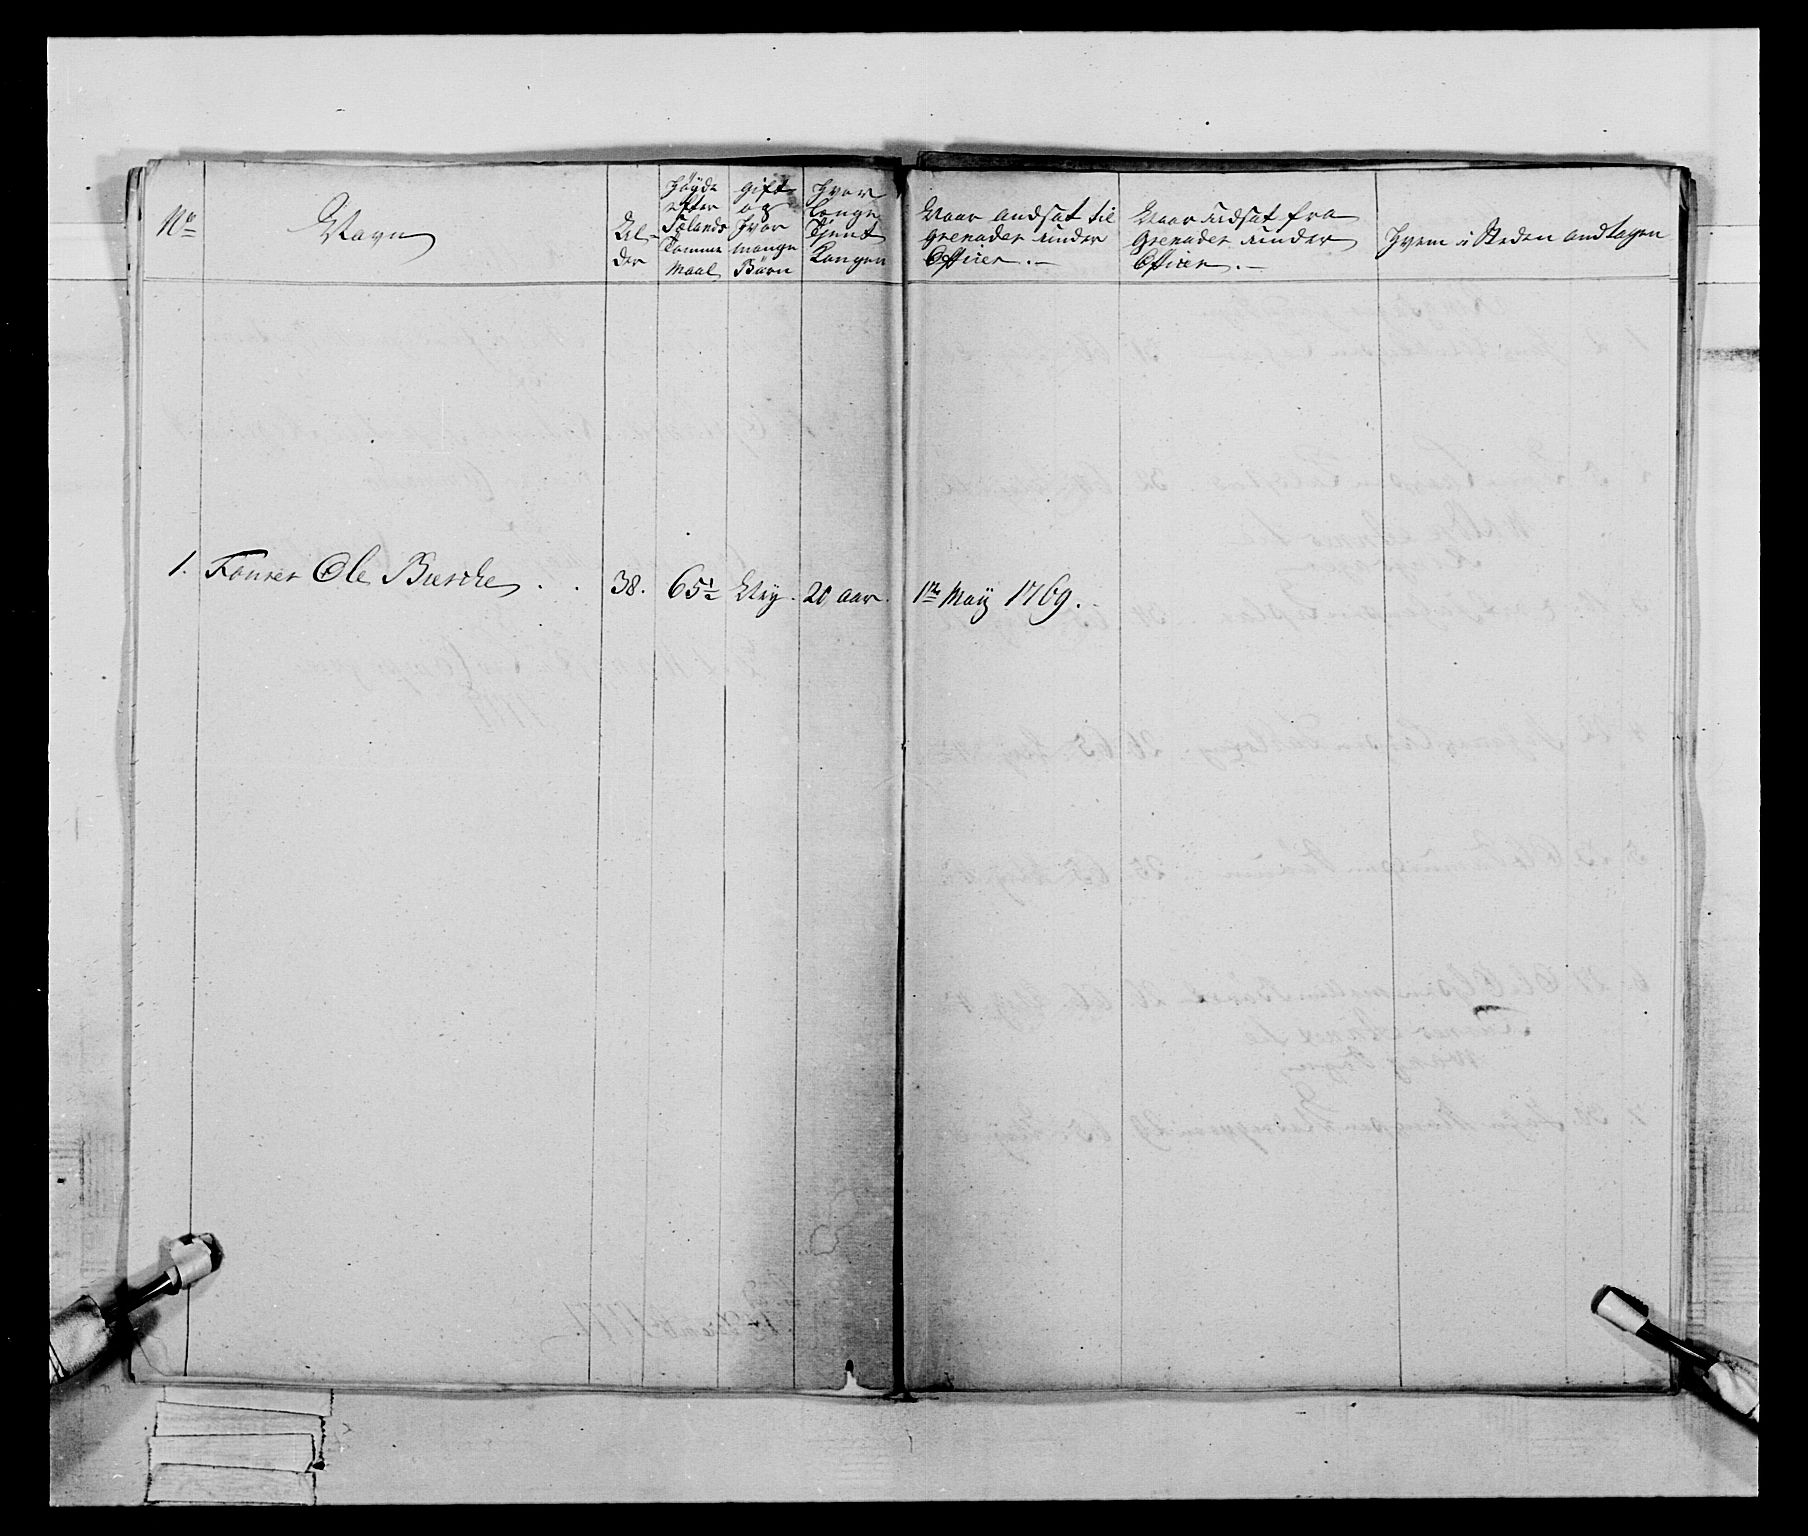 No
Navn
Al-
der
Høyde
efter
Sælands
Tomme
Maal
gift
og
hvor
mange
Børn
hvor
længe
tjent
Kongen
Naar andsat til
grenader under
Officer.-
Naar Udsat fra
Grenader under
Officer.-
hvem i Steden andtagen
1. Fourer Ole Biercke . . 38. 65½ Ney. 20 aar. 1te Maÿ 1769.-